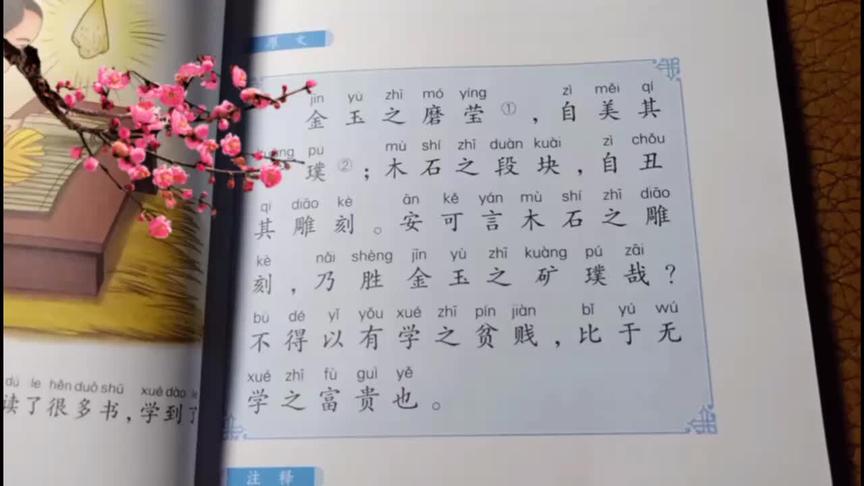 原文
jīn yù zhī mó yíng zì měi qí
金玉之磨莹①，自美其
pú mù shí zhī duàn kuài zì chǒu
璞②；木石之段块，自丑
qí diāo kè ān kě yán mù shí zhī diāo
其雕刻。安可言木石之雕
kè nǎi shèng jīn yù zhī kuàng pú zāi
刻，乃胜金玉之矿璞哉？
bù dé yǐ yǒu xué zhī pín jiàn bǐ yú wú
不得以有学之贫贱，比于无
xué zhī fù guì yě
学之富贵也。
注释
dú le hěn duō shū xué dào le
读了很多书，学到了